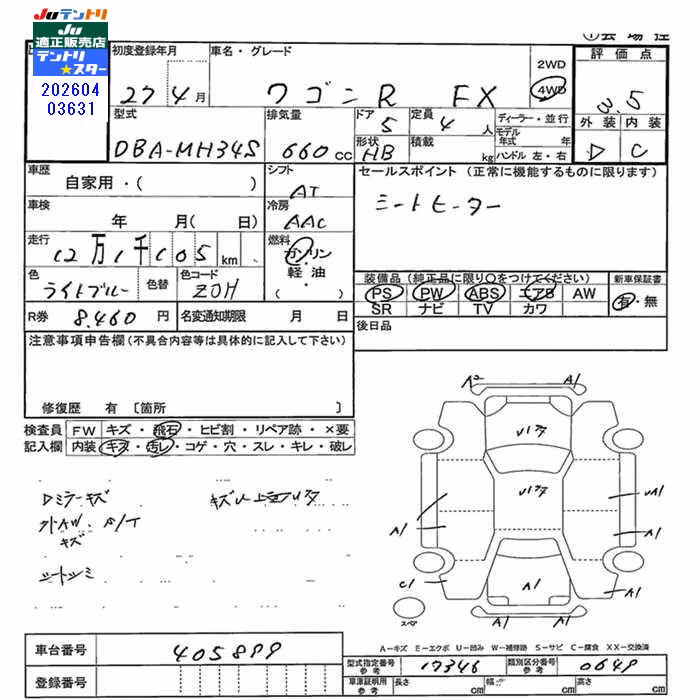 JUテントリ
JU
適正販売店
テントリ
★スター
202604
03631
初度登録年月
27 4月
車名・グレード
ワゴンR FX
2WD
4WD
評価点
3.5
外装 内装
D C
型式
DBA-MH34S
排気量
660cc
ドア
5
形状
HB
定員
4人
積載
kg
ディーラー・並行
モデル年式 年
ハンドル 左・右
車歴
自家用・( )
シフト
AT
セールスポイント (正常に機能するものに限ります)
シートヒーター
車検
年 月(日)
冷房
AAC
走行
12万1千105km
燃料
ガソリン
軽油・
( )
色
ライトブルー
色替
色コード
Z0H
装備品 (純正品に限り○をつけてください)
PS PW ABS エアB AW
SR ナビ TV カワ
新車保証書
有・無
R券 8,460円
名変通知期限 月 日
後日品
注意事項申告欄(不具合内容等は具体的に記入して下さい)
修復歴 有〔箇所 〕
検査員
記入欄
FW キズ・飛石・ヒビ割・リペア跡・×要
内装 キズ・汚レ・コゲ・穴・スレ・キレ・破レ
Dミラーキズ
キズ
シートシミ
A2 A1
A1 UA1
A1
C1 A1 A1
A1 A1
スペア
A-キズ E-エクボ U-凹み W-補修跡 S-サビ C-腐食 XX-交換済
車台番号 405899
登録番号
型式指定番号 参考 17346
類別区分番号 参考 0649
車庫証明用 参考 長さ cm 幅 cm 高さ cm